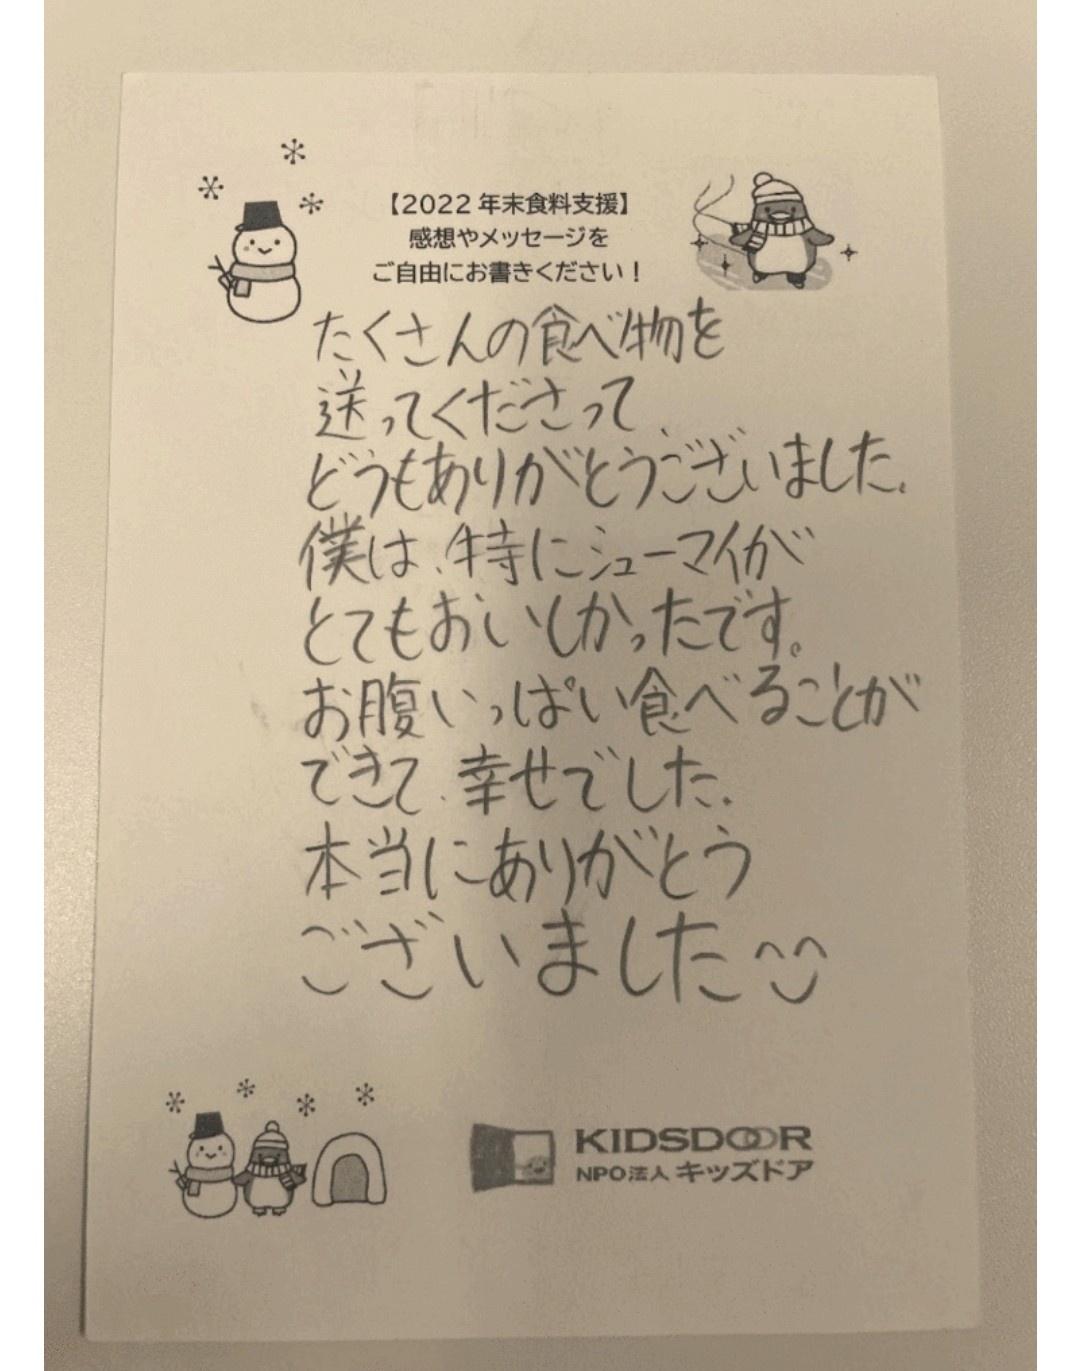 【2022年末食料支援】
感想やメッセージを
ご自由にお書きください！
たくさんの食べ物を
送ってくださって、
どうもありがとうございました。
僕は、特にシューマイが
とてもおいしかったです。
お腹いっぱい食べることが
できて、幸せでした。
本当にありがとう
ございました^^
KIDSDOOR
NPO法人キッズドア